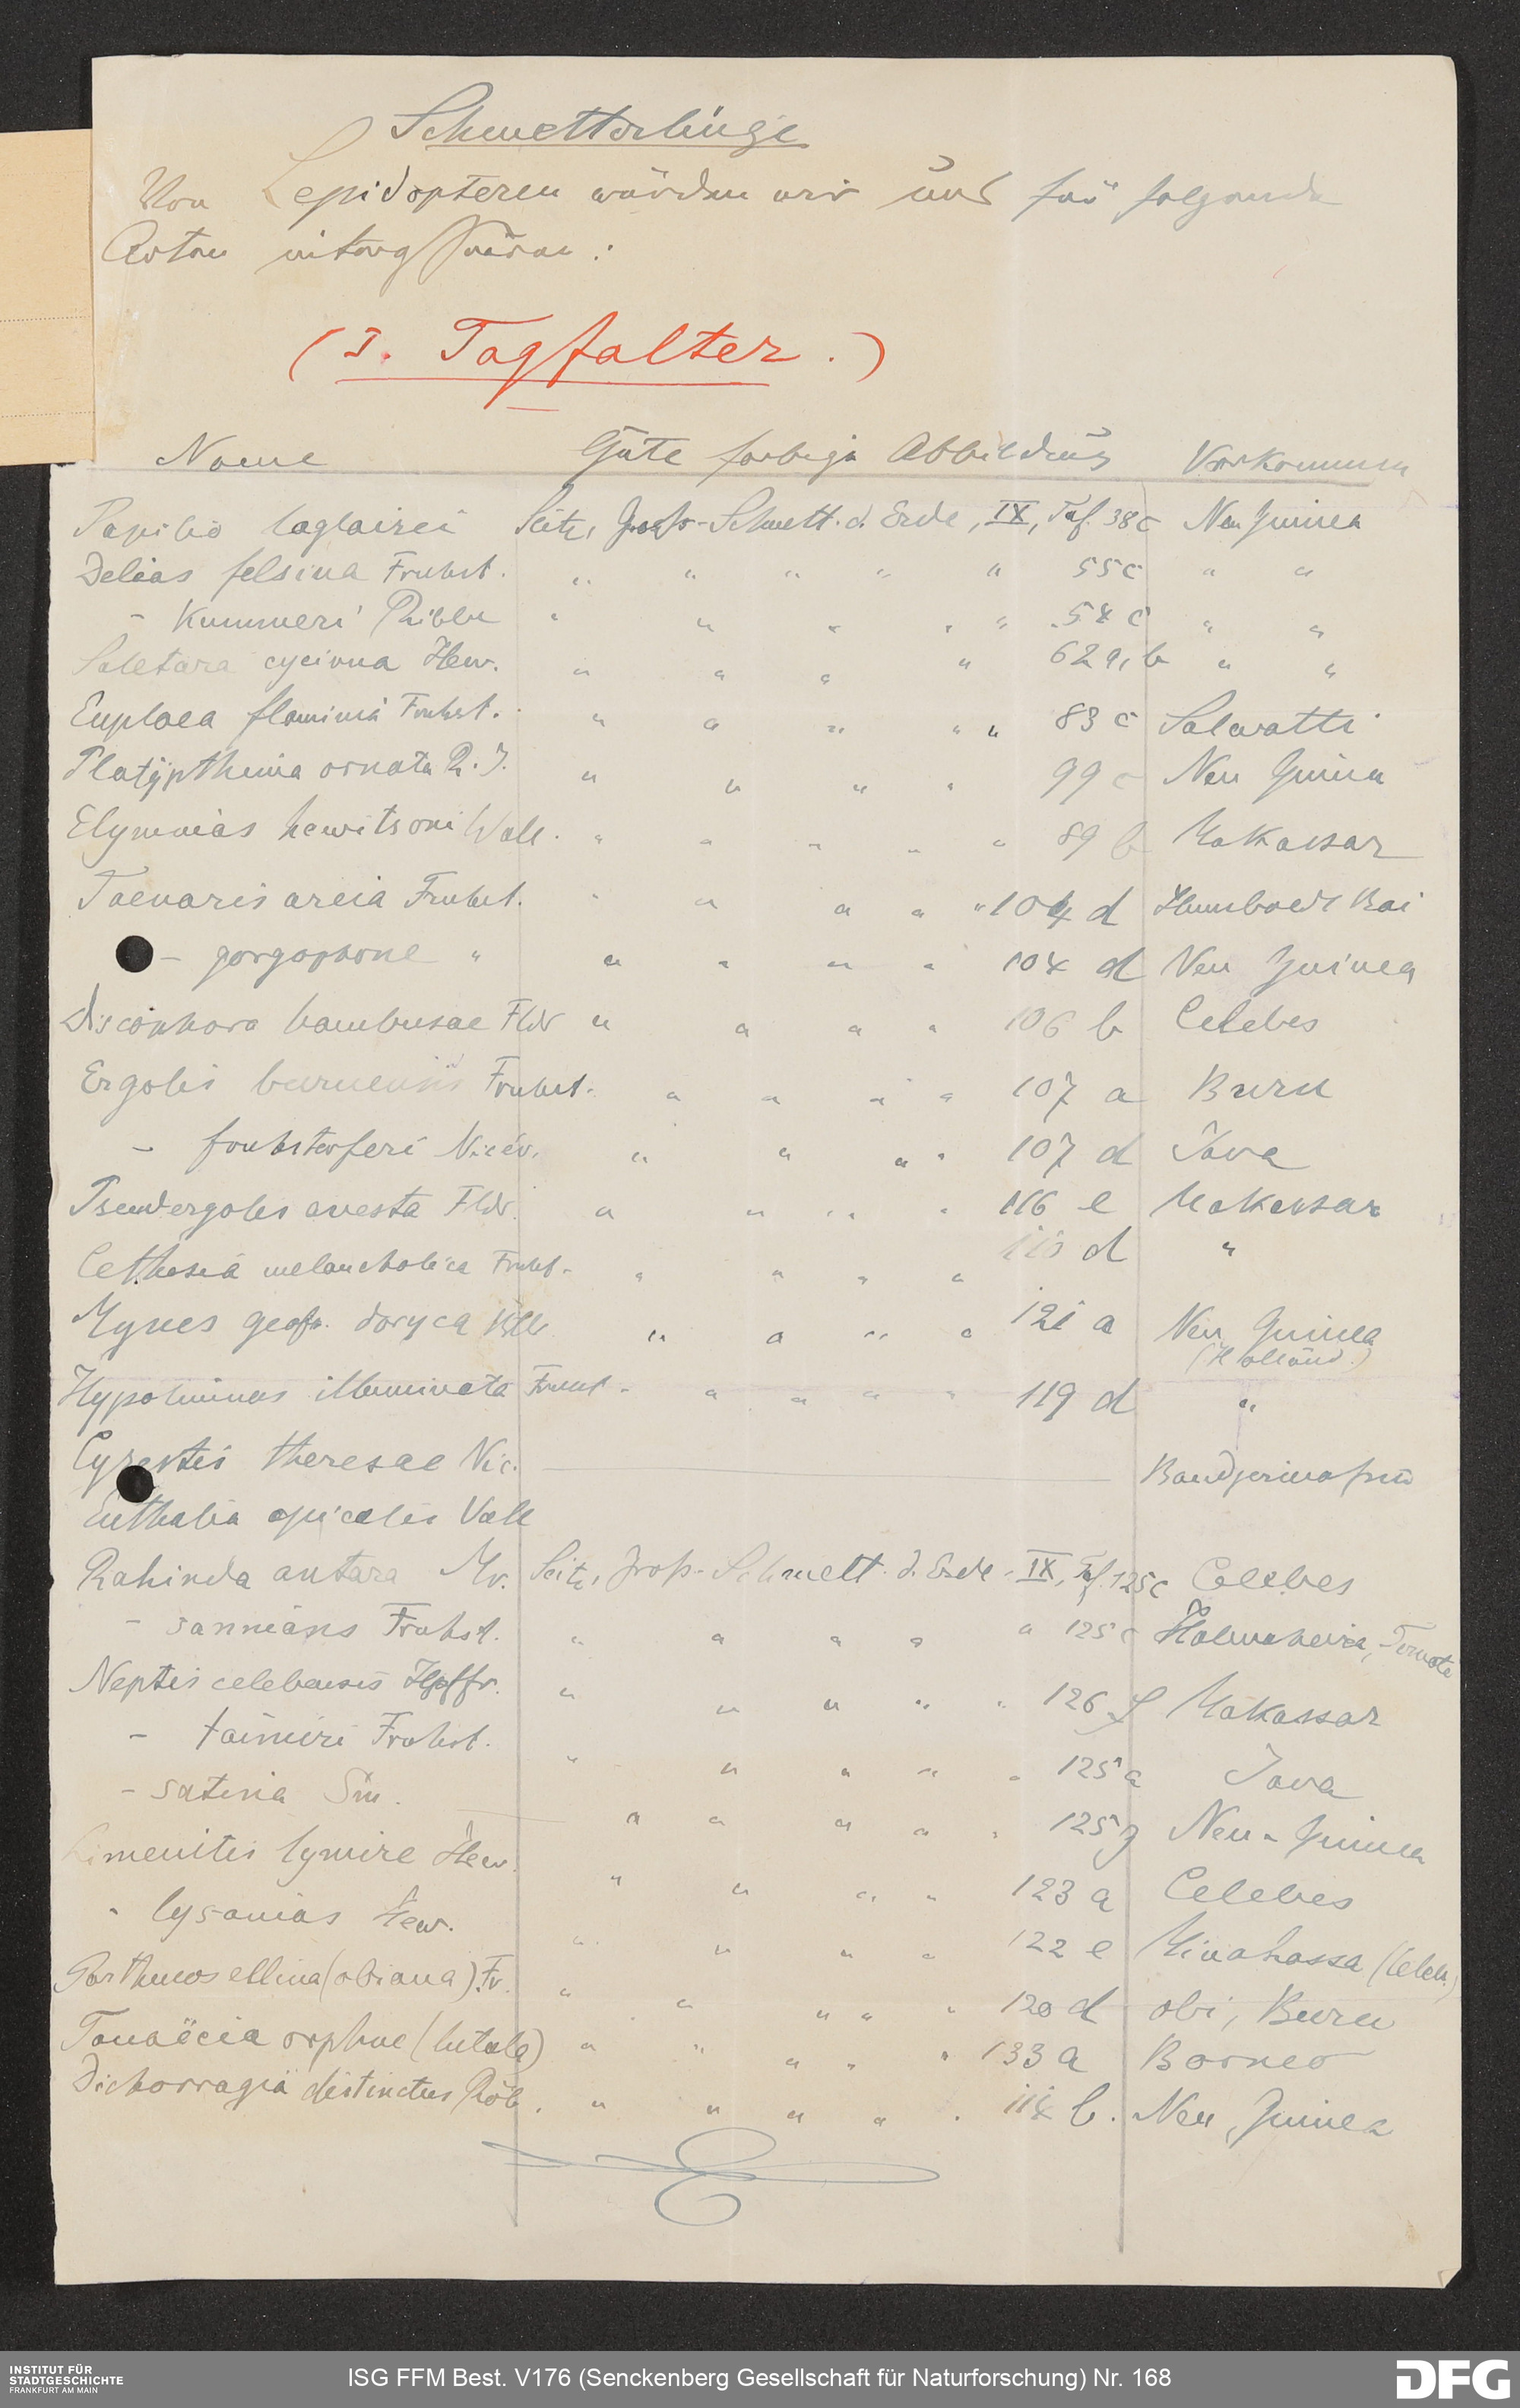 Schmetterlinge
Von Lepidopteren würden wir uns für folgende
Arten interessieren:
(I. Tagfalter.)
Name Gute farbige Abbildung Vorkommen
Papilio laglaizei Seitz, Gross-Schmett. d. Erde, IX, Taf. 38 c Neu Guinea
Delias felsina Fruhst. " " " " " 55 c " "
- Kummeri Ribbe " " " " " 54 c " "
Saletara cycinna Hew. " " " " 62 a, b " "
Euploea flaminia Fruhst. " " " " " 83 c Salwatti
Platypthima ornata R. J. " " " " 99 c Neu Guinea
Elymnias hewitsoni Wall. " " " " " 89 b Makassar
Taenaris areia Fruhst. " " " " " 104 d Humboldt Bai
- gorgophone " " " " " 104 d Neu Guinea
Discophora bambusae Fldr " " " " 106 b Celebes
Ergolis buruensis Fruhst. " " " " 107 a Buru
- fruhstorferi Nicév. " " " " 107 d Java
Pseudergolis avesta Fldr. " " " " 116 e Makassar
Cethosia melancholica Fruhst. " " " " d "
Mynes geoffr. doryca " " " " 121 a Neu Guinea
(Holländ.)
Hypolimnas illuminata Fruhst. " " " " 119 d "
Cyrestis theresae Nic. Bandjermasin
Euthalia apicalis Voll
Rahinda antara Mr. Seitz, Gross-Schmett. d. Erde. IX, Taf. 125 c Celebes
- sannians Fruhst. " " " " " 125 c Halmaheira, Ternate
Neptis celebensis Hpffr. " " " " " 126 f Makassar
- taimiri Fruhst. " " " " " 125 a Java
- satina Sm. " " " " " 125 g Neu-Guinea
Limenitis lymire Hew. " " " " 123 a Celebes
" lysanias Hew. " " " " 122 e Minahassa (Celeb.)
Parthenos ellina (obiana) Fr. " " " " " 120 d obi, Buru
Tanaëcia orphne (lutala) " " " " " 133 a Borneo
Dichorragia distinctus Röb. " " " " " 114 b. Neu Guinea
INSTITUT FÜR
STADTGESCHICHTE
FRANKFURT AM MAIN
ISG FFM Best. V176 (Senckenberg Gesellschaft für Naturforschung) Nr. 168
DFG